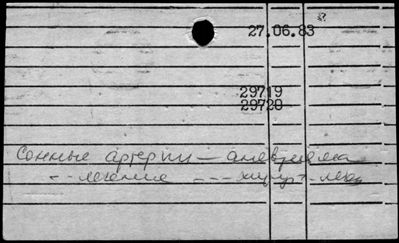 27.06.83
29719
29720
Сонные артерии — аневризма
-- лечение --- хирург.